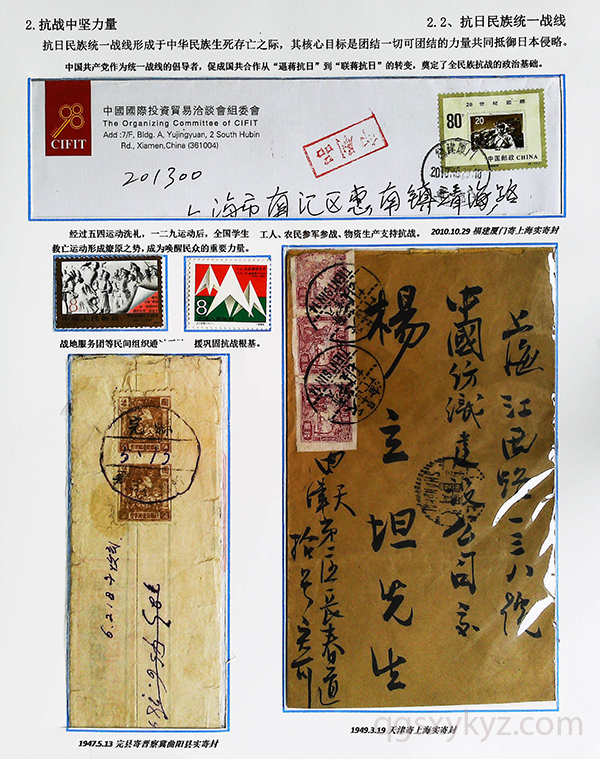 2.抗战中坚力量
2.2、抗日民族统一战线
抗日民族统一战线形成于中华民族生死存亡之际，其核心目标是团结一切可团结的力量共同抵御日本侵略。
中国共产党作为统一战线的倡导者，促成国共合作从“逼蒋抗日”到“联蒋抗日”的转变，奠定了全民族抗战的政治基础。
98
CIFIT
中國國際投資貿易洽談會組委會
The Organizing Committee of CIFIT
Add :7/F, Bldg. A, Yujingyuan, 2 South Hubin
Rd., Xiamen,China (361004)
20世纪回顾
80分
20
中国邮政 CHINA
201300
上海市南汇区惠南镇靖海路
经过五四运动洗礼，一二九运动后，全国学生
救亡运动形成燎原之势，成为唤醒民众的重要力量。
工人、农民参军参战、物资生产支持抗战。
2010.10.29 福建厦门寄上海实寄封
8
8
战地服务团等民间组织通
援巩固抗战根基。
上海江西路一三八號
中國紡織建設公司交
楊立坦先生
天
津第一區長春道
6.2.18
1947.5.13 完县寄晋察冀曲阳县实寄封
1949.3.19 天津寄上海实寄封
qgsxykyz.com